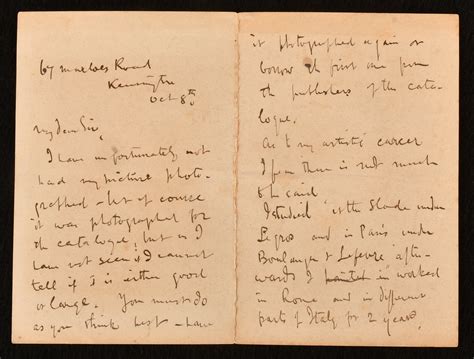 67 Marloes Road
Kensington
Oct 8th
My dear Sir,
I have unfortunately not
had my picture photo-
graphed - but of course
it was photographed for
the catalogue, but as I
have not seen it I cannot
tell if it is either good
or large. You must do
as you think best - have
it photographed again or
borrow the first one from
the publishers of the cata-
logue.
As to my artistic career
I fear there is not much
to be said
I studied at the Slade under
Legros and in Paris under
Boulanger & Lefevre after-
wards I worked
in Rome and in different
parts of Italy for 2 years.